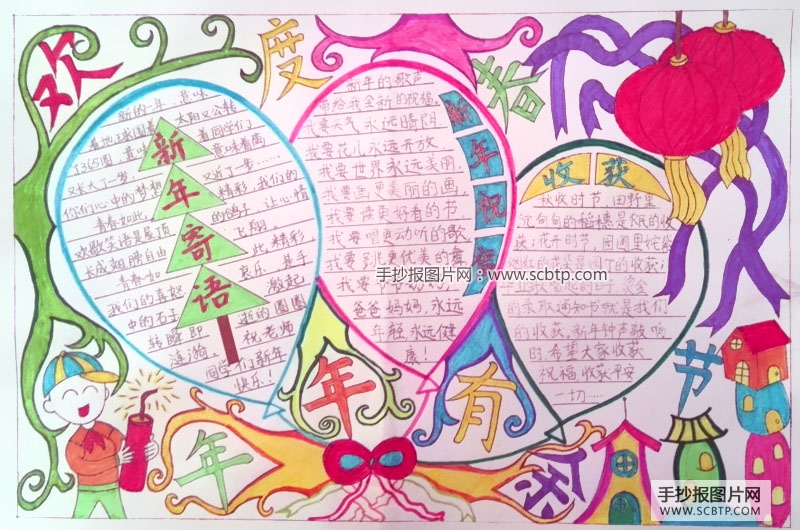 欢度春节
新的一年，意味
着地球围着太阳又公转
了365圈，意味着同学们又
长大了一岁，意味着离
你们心中的梦想又近了一步……
青春如此精彩，我们的
欢歌笑语是屋顶的鸽子，让心情
长成翅膀自由飞翔，
青春如此精彩
我们的喜怒哀乐，是手
中的石子，激起
转瞬即逝的圈圈
涟漪，祝老师
同学们新年
快乐！
新年寄语
新年的歌声
带给我全新的祝福，
我要天气永远晴朗
我要花儿永远开放
我要世界永远美丽，
我要画更美丽的画
我要读更好看的书
我要唱更动听的歌
我要跳更优美的舞
我要
爸爸妈妈，永远
年轻，永远健
康！
新年祝福
收获
秋收时节，田野里
沉甸甸的稻穗是农民的收
获；花开时节，园圃里姹紫
嫣红的花朵是园丁的收获；
的录取通知书就是我们
的收获。新年钟声敲响
时，希望大家收获
祝福，收获平安
一切……
年年有余
手抄报图片网：www.scbtp.com
手抄报图片网
WWW.SCBTP.COM